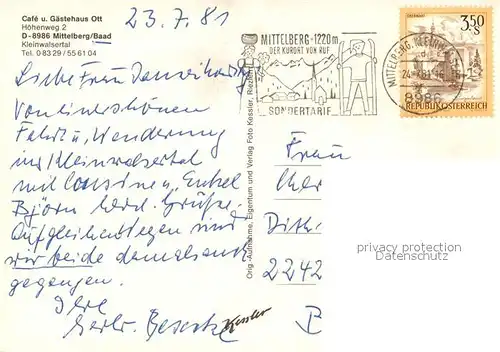 Café u. Gästehaus Ott
Höhenweg 2
D-8986 Mittelberg/Baad
Kleinwalsertal
Tel. 0 83 29 / 55 61 04
23.7.81
MITTELBERG·1220m
DER KURORT VON RUF
SONDERTARIF
MITTELBERG, KLEINWALSERTAL
8986
3,50 S
REPUBLIK ÖSTERREICH
Liebe Frau
Von einer schönen
Fahrt u. Wanderung
im Kleinwalsertal
mit Cousine u. Enkel
Björn herzl. Grüße.
Auf gleichen Wegen sind
wir beide damals
gegangen.
Ihre
Orig.-Aufnahme, Eigentum und Verlag Foto Kessler,
Kessler
Frau
2242
privacy protection
Datenschutz